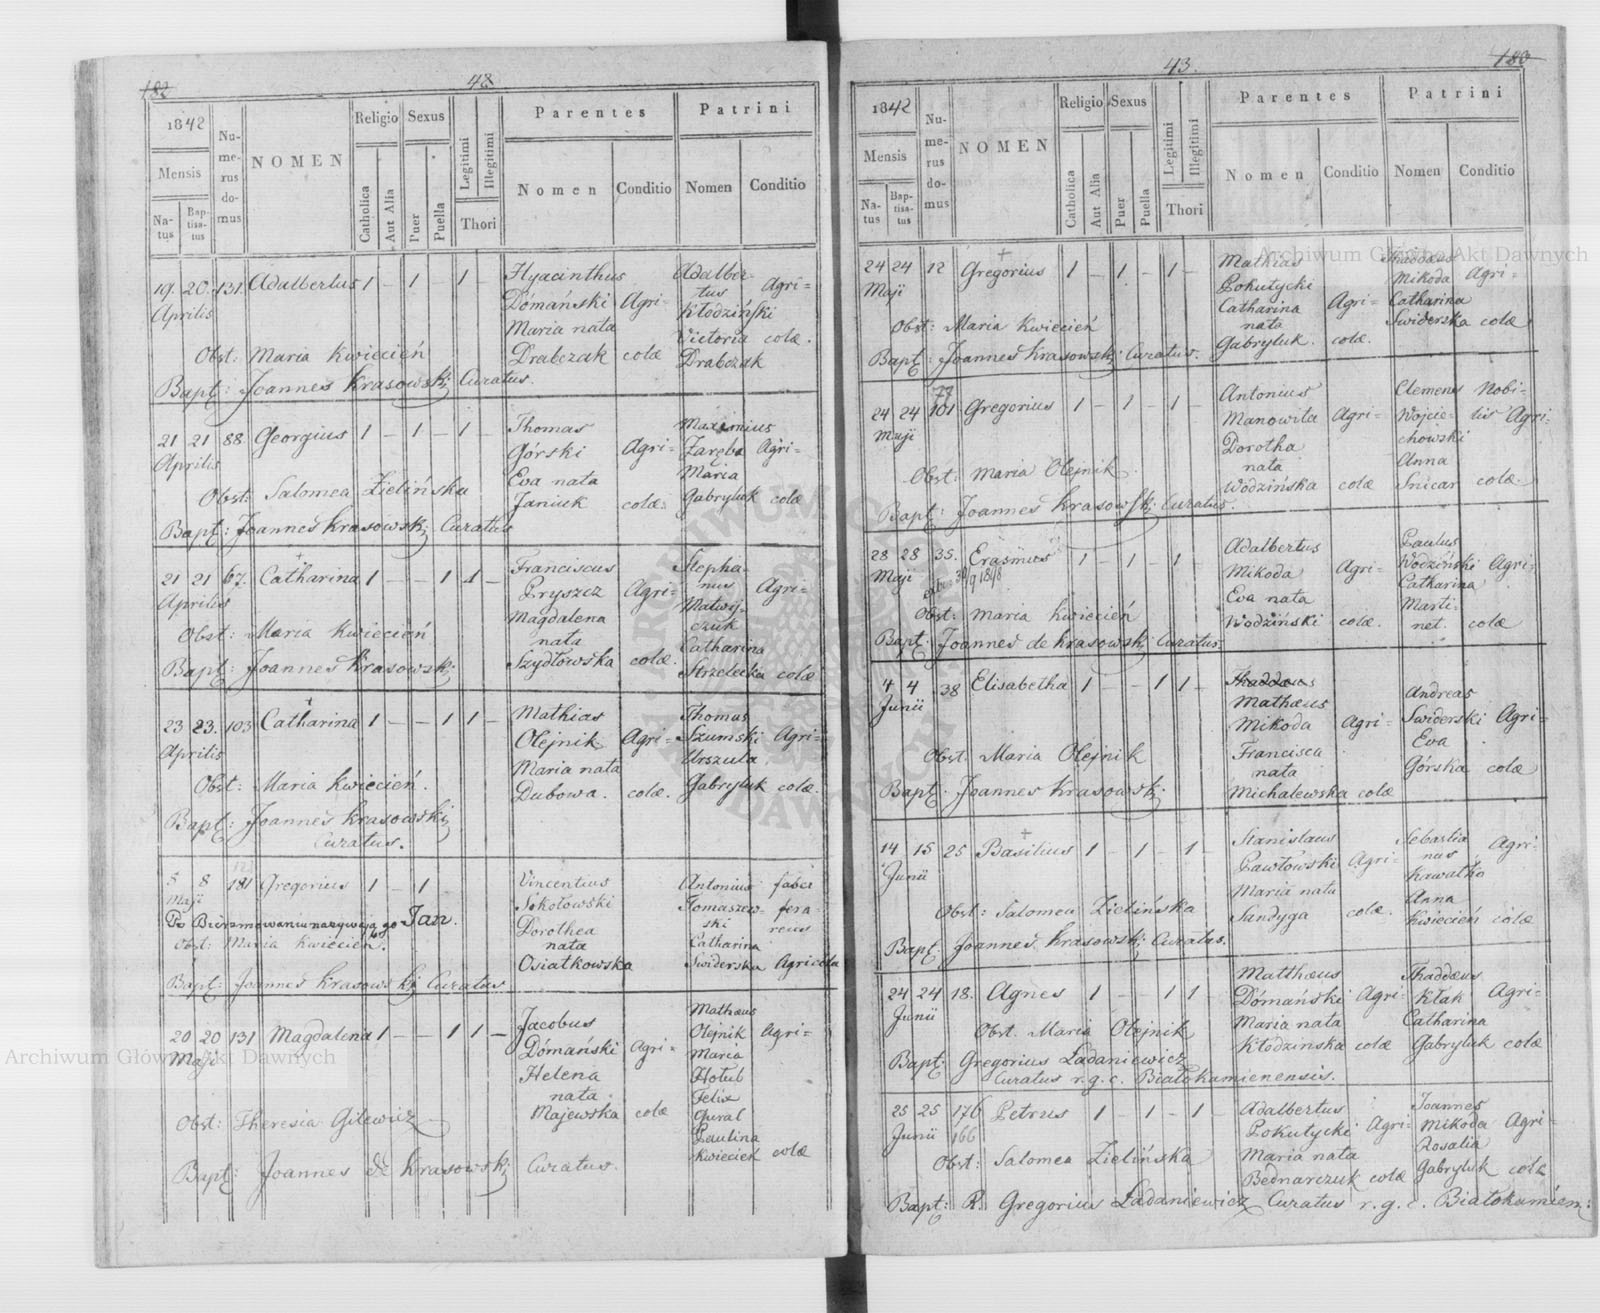 182
48
1842
Mensis
Na-
tus
Bap-
tisa-
tus
Nu-
me-
rus
do-
mus
NOMEN
Religio
Catholica
Aut Alia
Sexus
Puer
Puella
Legitimi
Illegitimi
Thori
Parentes
Nomen
Conditio
Patrini
Nomen
Conditio
19. 20. 131. Adalbertus 1 – 1 – 1 –
Aprilis
Hyacinthus
Domański Agri-
Maria nata
Drabczak colæ
Adalber-
tus Agri-
Kłodziński
Victoria colæ.
Drabczak
Obst: Maria Kwiecień
Bapt: Joannes Krasowski Curatus.
21 21 88 Georgius 1 – 1 – 1 –
Aprilis
Thomas
Górski Agri-
Eva nata
Janiuk colæ.
Zaręba Agri-
Maria
Gabryluk colæ
Obst: Salomea Zielińska
Bapt: Joannes Krasowski Curatus
21 21 67. Catharina 1 – – 1 1 –
Aprilis
Franciscus
Pryszcz Agri-
Magdalena
nata
Szydłowska colæ.
Stepha-
nus Agri-
Matwij-
czuk
Catharina
Strzelecka colæ
Obst: Maria Kwiecień
Bapt: Joannes Krasowski
23 23. 103 Catharina 1 – – 1 1 –
Aprilis
Mathias
Olejnik Agri-
Maria nata
Dubowa. colæ.
Thomas
Szumski Agri-
Urszula
Gabryluk colæ.
Obst: Maria Kwiecień.
Bapt: Joannes Krasowski
Curatus.
5 8 181 Gregorius 1 – 1 –
Maji
Po Bierzmowaniu nazywają go Jan.
Vincentius
Sokołowski
Dorothea
nata
Osiatkowska
Antonius faber
Tomaszew- fera-
ski reius
Catharina
Swiderska Agricola
Obst: Maria Kwiecień.
Bapt: Joannes Krasowski Curatus
20 20 131 Magdalena 1 – – 1 1 –
Maji
Jacobus
Dómański Agri-
Helena
nata
Majewska colæ
Mathæus
Olejnik Agri-
Maria
Hotub
Felix
Gural
Paulina
Kwiecień colæ
Obst: Theresia Gilewicz
Bapt: Joannes de Krasowski Curatus.
43.
180
1842
Mensis
Na-
tus
Bap-
tisa-
tus
Nu-
me-
rus
do-
mus
NOMEN
Religio
Catholica
Aut Alia
Sexus
Puer
Puella
Legitimi
Illegitimi
Thori
Parentes
Nomen
Conditio
Patrini
Nomen
Conditio
24 24 12 Gregorius 1 – 1 – 1 –
Maji
Mathias
Pokutycki
Catharina Agri-
nata
Gabryluk. colæ.
Thaddæus
Mikoda Agri-
Catharina
Swiderska colæ
Obst: Maria Kwiecień
Bapt: Joannes Krasowski Curatus.
77
24 24 101 Gregorius 1 – 1 – 1 –
Maji
Antonius
Manowita Agri-
Dorotha
nata
Wodzińska colæ
Clemens Nobi-
Wojcie- lis Agri-
chowski
Anna
Snicar colæ.
Obst: Maria Olejnik
Bapt: Joannes Krasowski Curatus.
28 28 35. Erasmus 1 – 1 – 1 –
Maji
Adalbertus
Mikoda Agri-
Eva nata
Wodziński colæ.
Paulus
Wodziński Agri-
Catharina
Marti-
net. colæ
Obst: Maria Kwiecień
Bapt: Joannes de Krasowski Curatus.
4 4 38 Elisabetha 1 – – 1 1 –
Junii
Thaddæus
Mathæus
Mikoda Agri-
Francisca
nata
Michalewska colæ
Andreas
Swiderski Agri-
Eva
Górska colæ
Obst. Maria Olejnik
Bapt. Joannes Krasowski
14 15 25 Basilius 1 – 1 – 1 –
Junii
Stanislaus
Pawłowski Agri-
Maria nata
Sandyga colæ.
Sebastia
nus Agri-
Kawałko
Anna
Kwiecień colæ
Obst: Salomea Zielińska
Bapt Joannes Krasowski Curatus.
24 24 18. Agnes 1 – – 1 1 –
Junii
Matthæus
Dómański Agri-
Maria nata
Kłodzinska colæ
Thaddæus
Kłak Agri-
Catharina
Gabryluk colæ
Obst. Maria Olejnik
Bapt: Gregorius Ladaniewicz
Curatus r. g. c. Białokamienensis.
25 25 176 Petrus 1 – 1 – 1 –
Junii 166
Adalbertus
Pokutycki Agri-
Maria nata
Bednarczuk colæ
Joannes
Mikoda Agri-
Rosalia
Gabryluk colæ
Obst: Salomea Zielińska
Bapt: R. Gregorius Ladaniewicz Curatus r. g. c. Białokamien:
Archiwum Główne Akt Dawnych
Archiwum Główne Akt Dawnych